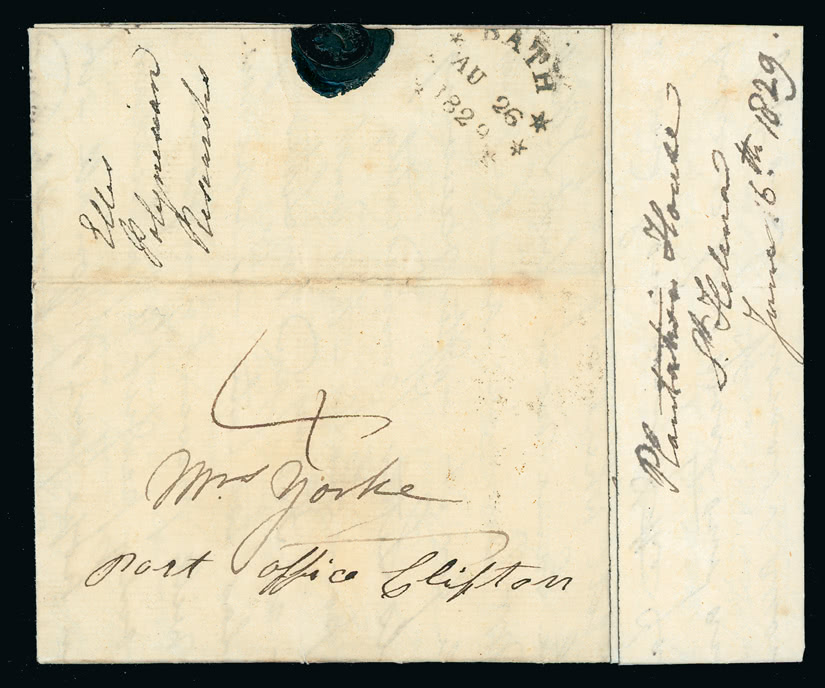 Ellis
Polynesian
Researches
BATH
AU 26
1829
4
Mrs Yorke
Post office Clifton
Plantation House
St Helena
June 6th 1829.